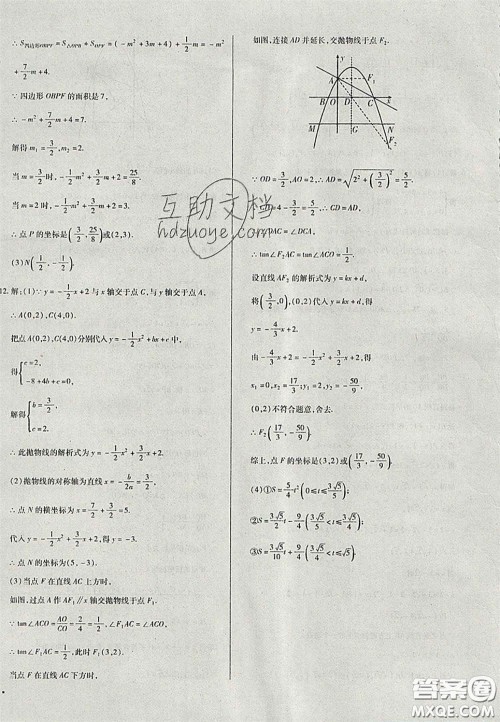 ∴S四边形OBPF=S△OPB+S△OPF=(-m²+3m+4)+(-1/2 m²
+7/2 m+4.
∵四边形OBPF的面积是7,
解得m₁=3/2,m₂=2.
当m=3/2时,-1/2m²+3/2m+2=25/8.
当m=2时,-1/2m²+3/2m+2=3.
∴点P的坐标是(3/2,25/8)或(2,3).
(3)N(1/2,-1/2)
12.解:(1)∵y=-1/2x+2与x轴交于点C,与y轴交于点A,
∴A(0,2),C(4,0).
把点A(0,2),C(4,0)分别代入y=-1/2x²+bx+c中,
得{c=2,
-8+4b+c=0.
解得{b=3/2,
c=2.
∴此抛物线的解析式为y=-1/2x²+3/2x+2.
(2)抛物线的对称轴为直线x=-b/2a=3/2,
∴点N的横坐标为x=7/2+3/2=5.
代入y=-1/2x²+3/2x+2,得y=-3.
∴点N的坐标为(5,-3).
(3)当点F在直线AC上方时,
如图,过点A作AF₁∥x轴交抛物线于点F₁.
∵tan∠ACO=AO/CO=2/4=1/2,∴∠F₁AC=∠ACO,
∴tan∠F₁AC=1/2.此时F₁(3,2).
当点F在直线AC下方时,
如图,连接AD并延长,交抛物线于点F₂.
y
A F₁
B O D C x
M G N
F₂
∵OD=3/2,AO=2,∴AD=√(2²+(3/2)²)=5/2
∴CD=AD,
∠DCA,
∴tan∠F₂AC=tan∠ACO=1/2.
设直线AF₂的解析式为y=kx+d,
将(3/2,0),(0,2)代入y=kx+d,得
∴y=-4/3x+2.
由-4/3x+2=-1/2x²+3/2x+2,得
x₁=0,x₂=17/3;y₁=2,y₂=-50/9.
(0,2)不符合题意,舍去.
∴F₂(17/3,-50/9).
综上,点F的坐标是(3,2)或(17/3,-50/9).
(4)①S=5/4t²(0≤t≤3√5/5)
②S=3√5/2t-9/4(3√5/5
③S=3√5/10t+9/4(
互助文档
hdzuoye.com
答案圈
MXQE.COM